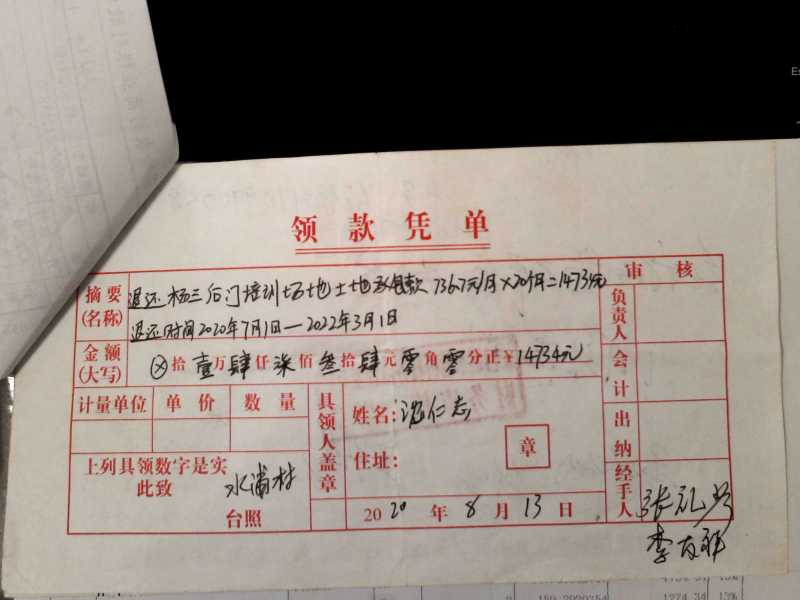 领款凭单
摘要(名称) 退还杨三后门培训场地土地承包款 736.7元/月×20个月=14734元
退还时间2020年7月1日—2022年3月1日
金额(大写) ⊗拾壹万肆仟柒佰叁拾肆元零角零分正¥14734元
计量单位 单价 数量
上列具领数字是实
此致 水浦村
台照
具领人盖章
姓名: 仁志
住址:
章
2020年8月13日
审核
负责人
会计
出纳
经手人 张礼
李
159.2920354
1274.34 13%